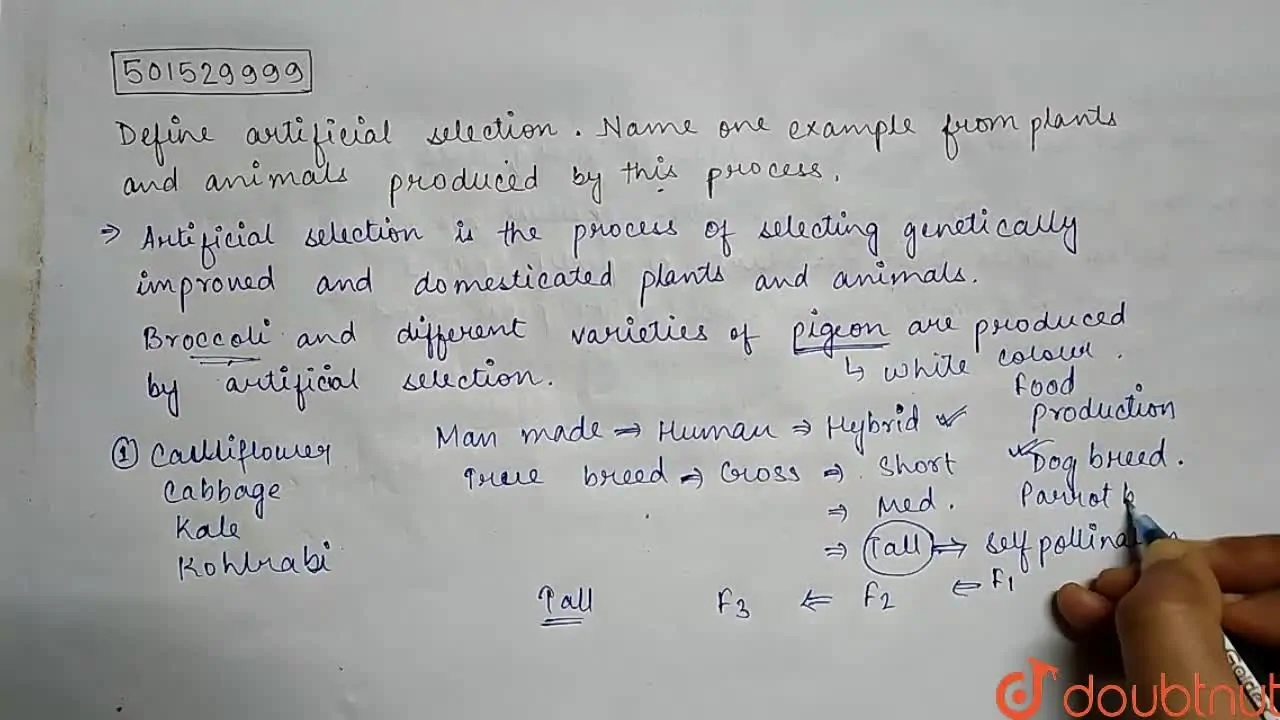 501529999
Define artificial selection. Name one example from plants
and animals produced by this process.
⇒ Artificial selection is the process of selecting genetically
improved and domesticated plants and animals.
Broccoli and different varieties of pigeon are produced
↳ white colour.
by artificial selection.
① Cauliflower
Cabbage
Kale
Kohlrabi
Man made ⇒ Human ⇒ Hybrid ✓
True breed ⇒ Cross ⇒ Short
⇒ Med.
⇒ Tall ⇒ self pollination
Food
production
✓ Dog breed.
Parrot b
Tall F3 ⇐ F2 ⇐ F1
doubtnut